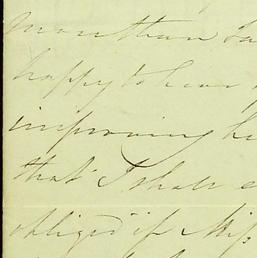 more than
happy to hear
improving
that I shall
obliged if Miss